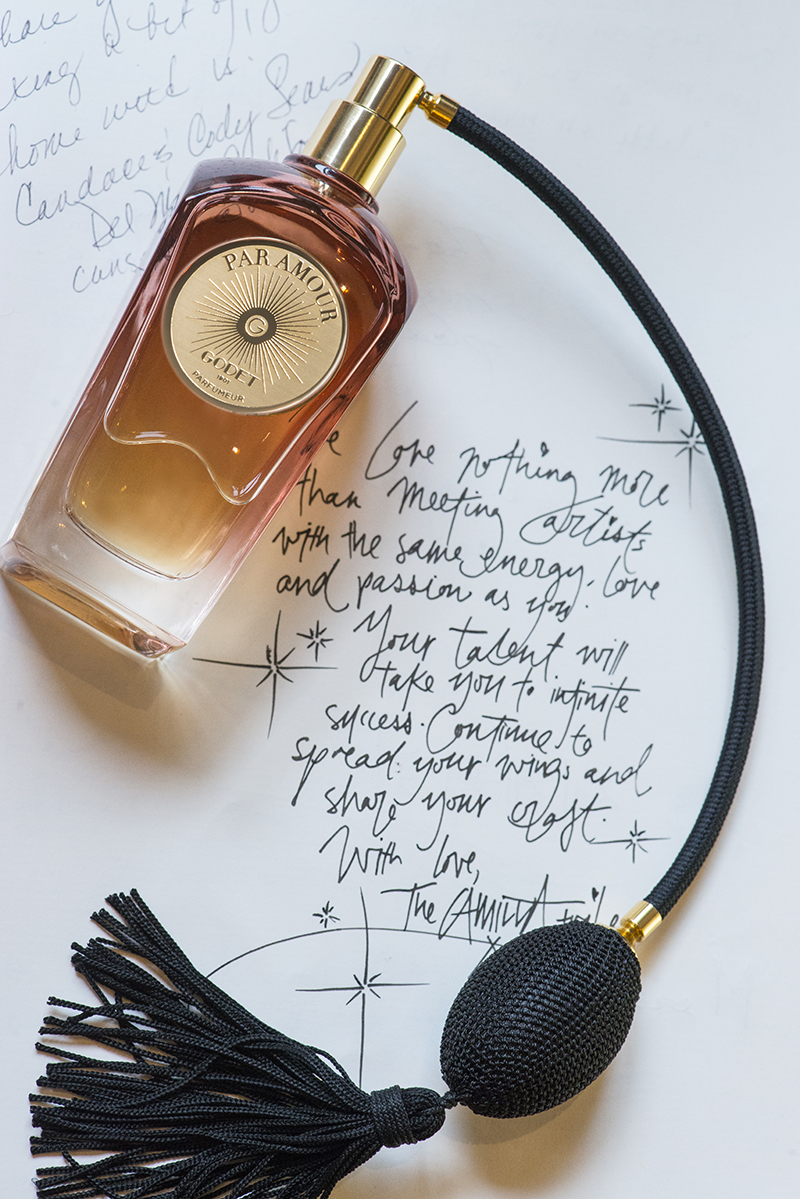 home with us.
Candace's Cody
Del
PAR AMOUR
G
GODET
1901
PARFUMEUR
love nothing more
than meeting artists
with the same energy, love
and passion as you.
Your talent will
take you to infinite
success. Continue to
spread your wings and
share your craft.
With love,
The